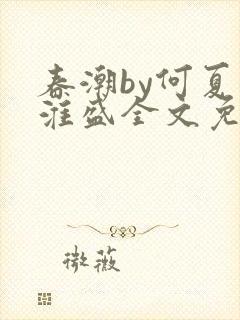 春潮by何夏
淮盛全文免
微薇